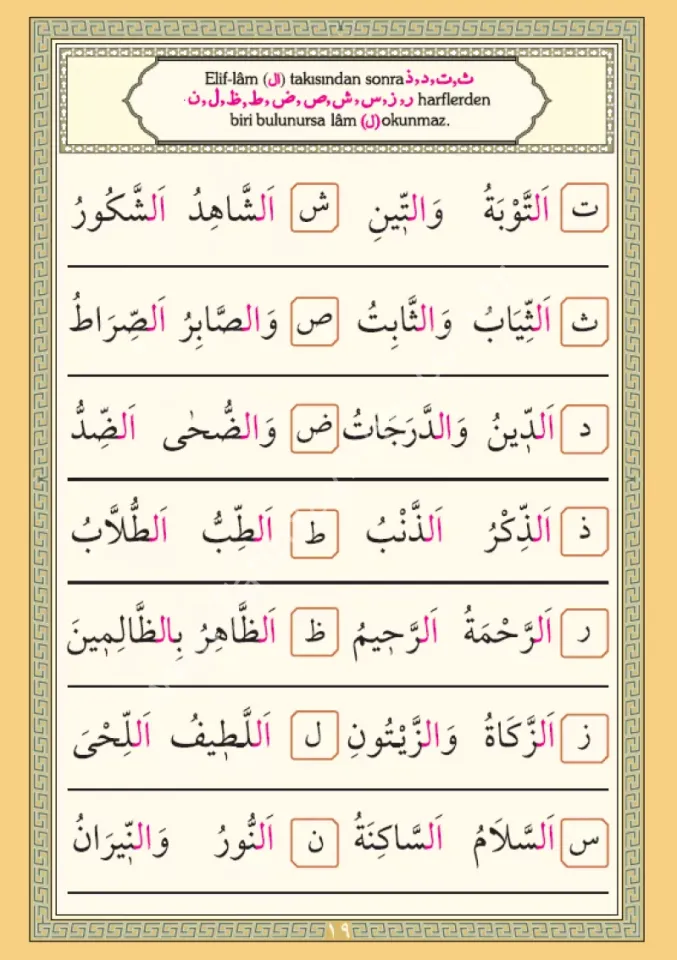 Elif-lâm (ال) takısından sonra ث,ت,د,ذ
ر,ز,س,ش,ص,ض,ط,ظ,ل,ن harflerden
biri bulunursa lâm (ل) okunmaz.
ت اَلتَّوْبَةُ وَالتّٖينِ ش اَلشَّاهِدُ اَلشَّكُورُ
ث اَلثِّيَابُ وَالثَّابِتُ ص وَالصَّابِرُ اَلصِّرَاطُ
د اَلدّٖينُ وَالدَّرَجَاتُ ض وَالضُّحٰى اَلضِّدُّ
ذ اَلذِّكْرُ اَلذَّنْبُ ط اَلطِّبُّ اَلطُّلَّابُ
ر اَلرَّحْمَةُ اَلرَّحٖيمُ ظ اَلظَّاهِرُ بِالظَّالِمٖينَ
ز اَلزَّكَاةُ وَالزَّيْتُونِ ل اَللَّطٖيفُ اَللِّحْىَ
س اَلسَّلَامُ اَلسَّاكِنَةُ ن اَلنُّورُ وَالنّٖيرَانُ
١٩